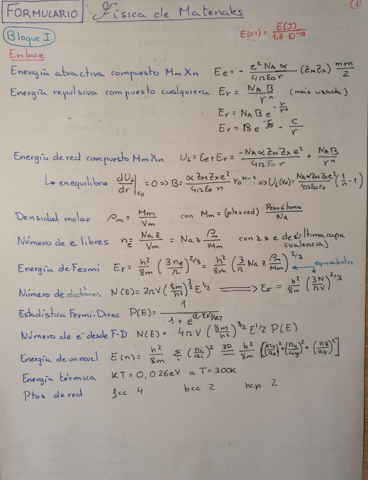 FORMULARIO Física de Materiales (1)
Bloque I E(eV) = E(J) / 1,6·10^-19
Enlace
Energía atractiva compuesto MmXn Ee = - e² NA α / 4πε₀r (Zm Zx) mn/2
Energía repulsiva compuesto cualquiera Er = NA B / rⁿ (más usada)
Er = NA B e^
Er = B e^ - C/r
Energía de red compuesto MmXn UL = Ee + Er = -NA α Zm Zx e² / 4πε₀ r + NA B / rⁿ
↳ en equilibrio dUL/dr |r₀ = 0 => B = α Zm Zx e² / 4πε₀ n r₀ⁿ⁻¹ => UL(r₀) = NA α Zm Zx e² / 4πε₀ r₀ (1/n - 1)
Densidad molar ρm = Mm / Vm con Mm = (ptos red) Peso átomo / NA
Número de e libres ne = Na Z / Vm = Na Z ρm / Mm con z = e de última capa (valencia)
Energía de Fermi EF = h²/8m (3 ne / π)^2/3 = h²/8m (3/π Na Z ρm/Mm)^2/3 equivalentes
Número de electrones N(E) = 2πV (8m/h²)^3/2 E^1/2 => EF = h²/8m (3N/πV)^2/3
Estadística Fermi-Dirac P(E) = 1 / 1 + e^(E-EF)/KT
Número de e desde F-D N(E) = 4πV (8m/h²)^3/2 E^1/2 P(E)
Energía de un nivel E(n) = h²/8m Σi (ni/ai)² 3D = h²/8m [(nx/ax)² + (ny/ay)² + (nz/az)²]
Energía térmica KT = 0,026eV a T = 300K
Ptos de red fcc 4 bcc 2 hcp 2